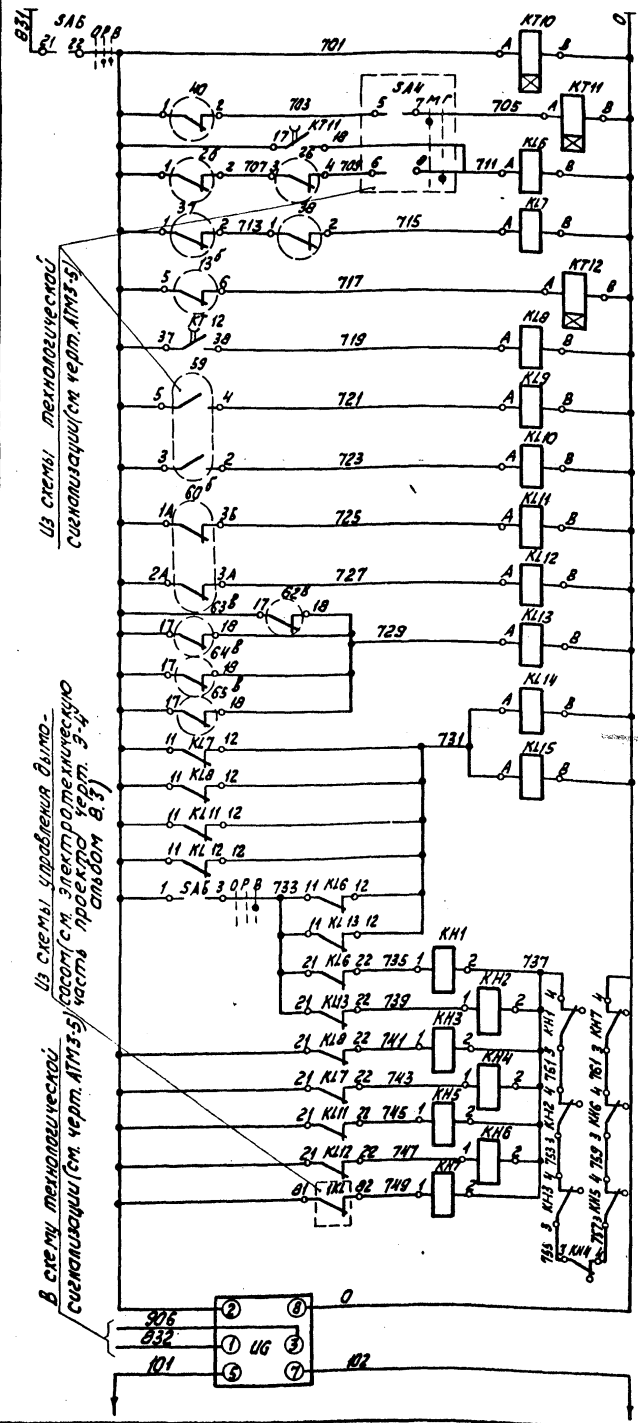 831
SA6
0 P B
21
22
701
A
KT10
B
0
40
1
2
703
SA4
5
7
М Г
705
A
KT11
B
17
KT11
18
2б
1
2
707
3
2б
4
709
6
8
711
A
KL6
B
37
1
2
713
1
38
2
715
A
KL7
B
13б
5
6
717
A
KT12
B
KT 12
37
38
719
A
KL8
B
59
5
4
721
A
KL9
B
3
2
723
A
KL10
B
60б
1А
3Б
725
A
KL11
B
2А
3А
727
A
KL12
B
17
62в
18
63в
17
18
729
A
KL13
B
64в
17
18
65в
17
18
A
KL14
B
731
A
KL15
B
11 KL7 12
11 KL8 12
11 KL11 12
11 KL12 12
1 SA6 3 0 P B 733 11 KL6 12
11 KL13 12
21 KL6 22 735 1 KH1 2 737
21 KL13 22 739 1 KH2 2
21 KL8 22 741 1 KH3 2
21 KL7 22 743 1 KH4 2
21 KL11 22 745 1 KH5 2
21 KL12 22 747 1 KH6 2
81 82 749 1 KH7 2
4 KH1 3
761
4 KH2 3
753
4 KH3 3
755
3 KH4 4
757
3 KH5 4
759
3 KH6 4
761
3 KH7 4
Из схемы технологической
сигнализации (см. черт. АТМ3-5)
Из схемы управления дымо-
сосом (см. электротехническую
часть проекта черт. Э-4
альбом 8.3)
В схему технологической
сигнализации (см. черт. АТМ3-5)
2
8
0
906
832
1
UG
3
101
5
7
102